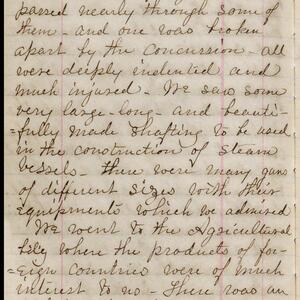 passed nearly through some of
them - and one was broken
apart by the concussion - all
were deeply indented and
much injured - We saw some
very large - long - and beauti-
=fully made shafting to be used
in the construction of steam
vessels - there were many guns
of different sizes with their
equipments which we admired
We went to the Agricultural
where the products of for-
=eign countries were of much
interest to us - There was an